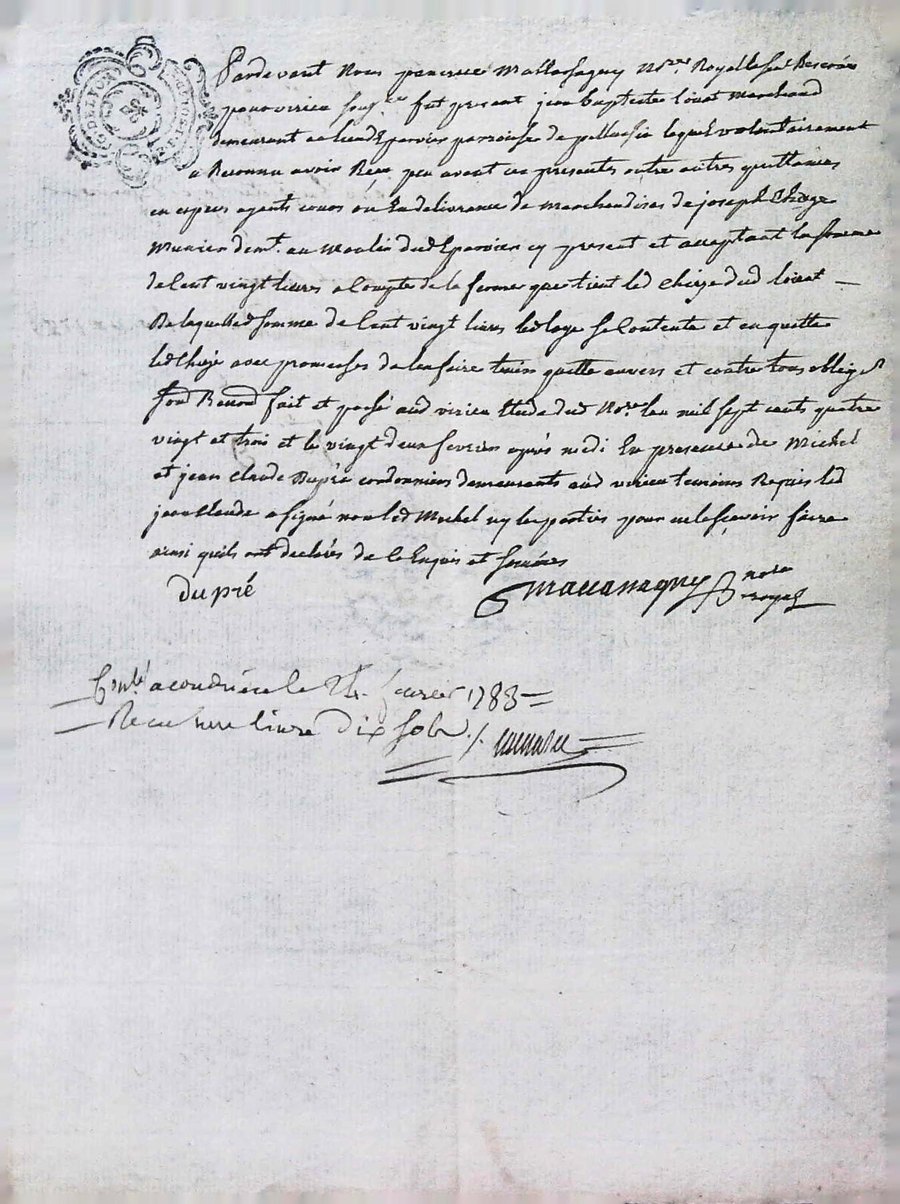 G. DE LYON
Pardevant Nous Notre Royal
pour virieu fut present jean baptiste Marchand
demeurant parroisse de pellussin lequel volontairement
a Reconnu avoir Reçu peu avant ces presentes outre autres quittances
en especes agents cours ou En delivrance de Marchandises de joseph
Munier demt. au Moulin cy present et acceptant la somme
de Cent vingt livres a Compte de la ferme que tient led
De laquelle d somme de Cent vingt livres led se Contente et en quitte
led avec promesses de l'en faire tenir quitte envers et contre tous
fait et passé aud virieu Etude dud Nore. l'an mil sept cents quatre
vingt et trois et le vingt deux fevrier après midi En presence de Michel
et jean Claude Dupré cordonniers demeurants aud virieu temoins Requis led
jean Claude a signé non led Michel ny les parties pour ne le sçavoir faire
ainsi quils ont declarés de ce Enquis et sommés
dupré
nore
royal
Conlé a condrieu le 24. fevrier 1783
Recu livre dix sols